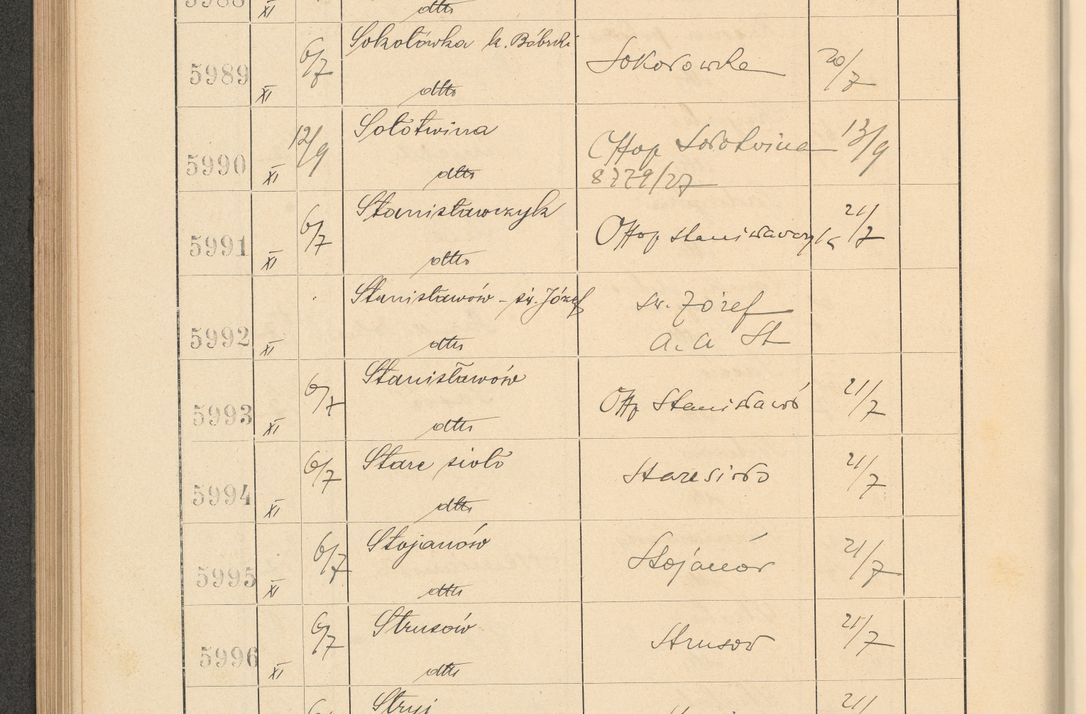 5988 XI dtto
5989 XI 6/7 Sokołówka k. Bóbrki Sokołowka 20/7
dtto
5990 XI 12/9 Sołotwina Ottop Sołotwina 13/9
dtto 8279/27
5991 XI 6/7 Stanisławczyk Ottop Stanisławczyk 21/7
dtto
5992 XI Stanisławów - św. Józef św. Józef
dtto a. a St
5993 XI 6/7 Stanisławów Ottp Stanisławó 21/7
dtto
5994 XI 6/7 Stare sioło Staresioło 21/7
dtto
5995 XI 6/7 Stojanów Stojanów 21/7
dtto
5996 XI 6/7 Strusów Strusow 21/7
dtto
Stryj 21/